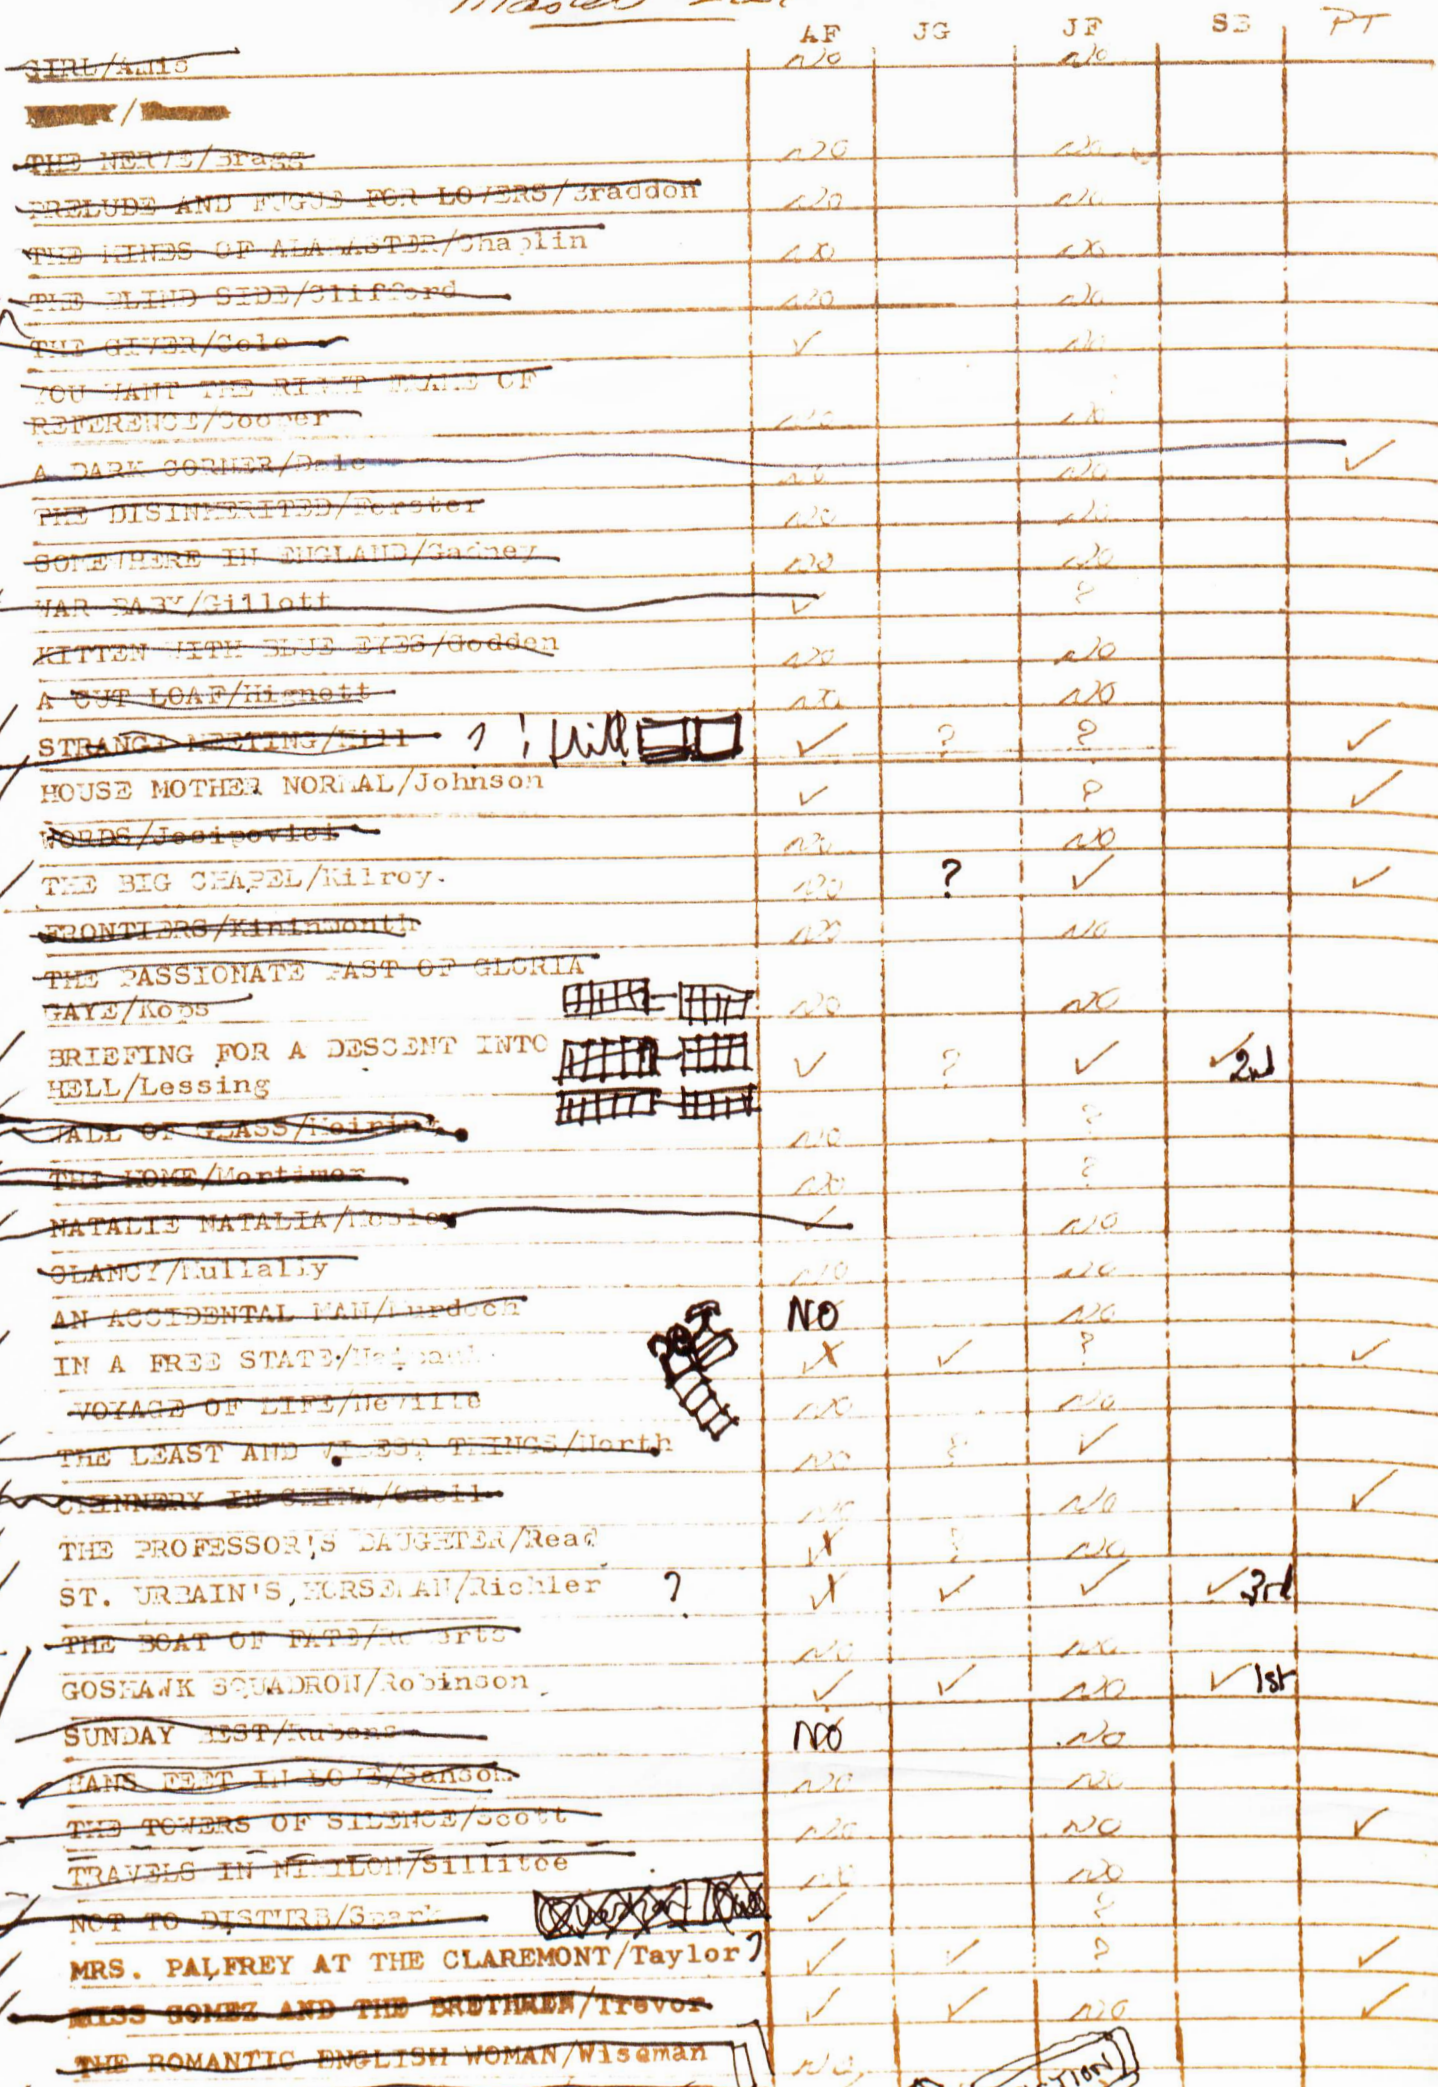 Master List
AF JG JF SB PT
GIRL/Amis NO NO
/
THE NERVE/Bragg NO NO
PRELUDE AND FUGUE FOR LOVERS/Braddon NO NO
THE MINES OF ALABASTER/Chaplin NO NO
THE BLIND SIDE/Clifford NO NO
THE GIVER/Cole ✓ NO
YOU WANT THE RIGHT FRAME OF
REFERENCE/Cooper NO NO
A DARK CORNER/Dale NO NO ✓
THE DISINHERITED/Forster NO NO
SOMEWHERE IN ENGLAND/Gadney NO NO
WAR BABY/Gillott ✓ ?
KITTEN WITH BLUE EYES/Godden NO NO
A CUT LOAF/Hignett NO NO
STRANGE MEETING/Hill ? ! Hill ✓ ? ? ✓
HOUSE MOTHER NORMAL/Johnson ✓ ? ✓
WORDS/Josipovici NO NO
THE BIG CHAPEL/Kilroy. NO ? ✓ ✓
FRONTIERS/Kininmonth NO NO
THE PASSIONATE PAST OF GLORIA
GAYE/Kops NO NO
BRIEFING FOR A DESCENT INTO
HELL/Lessing ✓ ? ✓ ✓ 2nd
WALL OF GLASS/ NO ?
THE HOME/Mortimer NO ?
NATALIE NATALIA/Mosley ✓ NO
CLANCY/Mullally NO NO
AN ACCIDENTAL MAN/Murdoch NO NO
IN A FREE STATE/Naipaul X ✓ ? ✓
VOYAGE OF LIFE/Neville NO NO
THE LEAST AND VILEST THINGS/North NO ? ✓
CHINNERY IN CHINA/Odell NO NO ✓
THE PROFESSOR'S DAUGHTER/Read X ? NO
ST. URBAIN'S HORSEMAN/Richler ? X ✓ ✓ ✓ 3rd
THE BOAT OF FATE/Roberts NO NO
GOSHAWK SQUADRON/Robinson ✓ ✓ NO ✓ 1st
SUNDAY BEST/Rubens NO NO
HANS FEET IN LOVE/Sansom NO NO
THE TOWERS OF SILENCE/Scott NO NO ✓
TRAVELS IN NIHILON/Sillitoe NO NO
NOT TO DISTURB/Spark ✓ ?
MRS. PALFREY AT THE CLAREMONT/Taylor ? ✓ ✓ ? ✓
MISS GOMEZ AND THE BRETHREN/Trevor ✓ ✓ NO ✓
THE ROMANTIC ENGLISH WOMAN/Wiseman NO